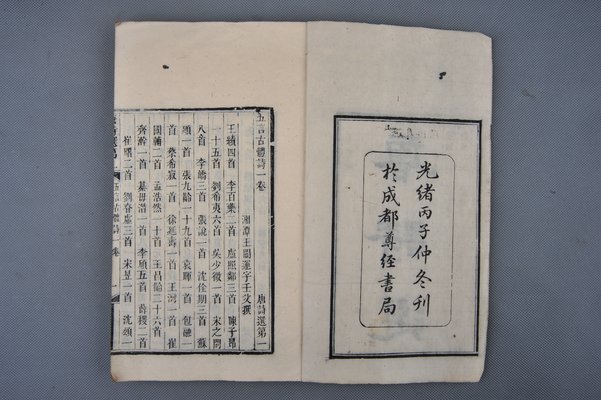 光緒丙子仲冬刊
於成都尊經書局
五言古體詩一卷
唐詩選第一
湘潭王闓運字壬父撰
王績四首 李百藥二首 盧照鄰三首 陳子昂
一十五首 劉希夷六首 吳少微一首 宋之問
八首 李嶠三首 張說一首 沈佺期三首 蘇
頲一首 張九齡一十九首 袁暉一首 包融一
首 蔡希寂一首 徐延壽一首 王灣一首 崔
國輔二首 孟浩然一十首 王昌齡二十六首
齊澣一首 綦毋潛一首 李頎五首 薛稷二首
崔曙二首 劉眘虛三首 宋昱一首 沈頌一